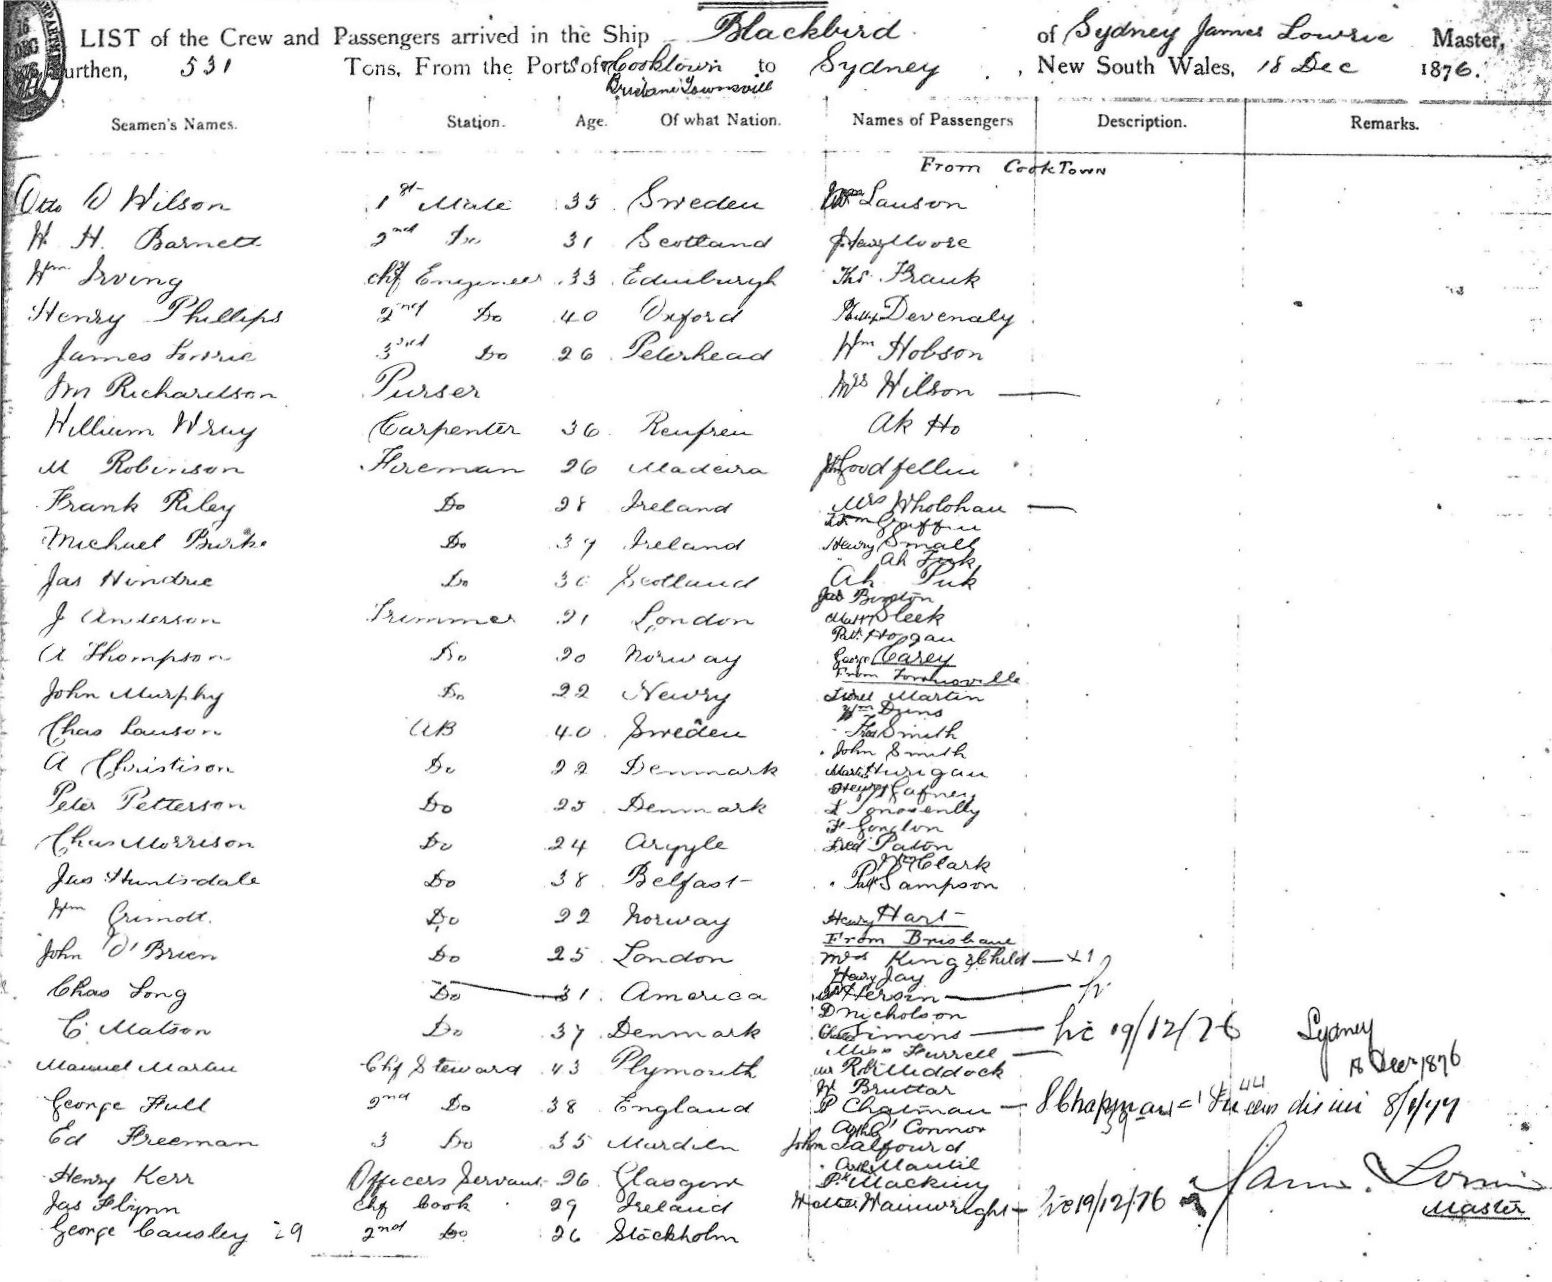 LIST of the Crew and Passengers arrived in the Ship Blackbird of Sydney James Lowrie Master,
Burthen, 531 Tons, From the Ports of Cooktown to Sydney, New South Wales, 18 Dec 1876.
Brisbane Townsvill
Seamen's Names. Station. Age. Of what Nation. Names of Passengers Description. Remarks.
From CookTown
Otto O Wilson 1st Mate 35 Sweden Wm Lauson
W H. Barnett 2nd Do 31 Scotland J Henry Moore
Wm Irving Chf Engineer 33 Edinburgh Ths Frank
Henry Phillips 2nd Do 40 Oxford Philip Devenaly
James Lowrie 3rd Do 26 Peterhead Wm Hobson
Wm Richardson Purser Mrs Wilson
William Wray Carpenter 36 Renfrew Ah Ho
M Robinson Fireman 26 Madeira Jno Goodfellin
Frank Riley Do 28 Ireland Mrs Wholohan
Wm Griffin
Michael Burke Do 37 Ireland Henry Small
Ah Fook
Jas Hendrie Do 30 Scotland Ah Puk
Jas Boynton
J Anderson Trimmer 21 London Matt Sleek
Patk Horgan
A Thompson Do 20 Norway George Carey
From Townsville
John Murphy Do 22 Newry Lionel Martin
Wm Duns
Chas Lauson AB 40 Sweden Thos Smith
John Smith
A Christison Do 22 Denmark Martin Hurigan
Henry Gafney
Peter Petterson Do 25 Denmark L
F Gordon
Chas Morrison Do 24 Argyle Fred Paton
Jno Clark
Jas Huntsdale Do 38 Belfast Patk Sampson
Wm Grimott Do 22 Norway Henry Hart
From Brisbane
John O'Brien Do 25 London Mrs King & Child x1
Henry Jay
Chas Long Do 31 America Hersen
D Nicholson
C Matson Do 37 Denmark Chas Simons 19/12/76 Sydney
Miss Furrell 18 Decr 1876
Manuel Martin Chf Steward 43 Plymouth Robt Middock
W Bruttar
George Hull 2nd Do 38 England P Chatman P Chapman 8/1/77
O'Connor
Ed Freeman 3 Do 35 John Talfourd
Mantil
Henry Kerr Officers Servant 26 Glasgow Pk Mackiny James Lowrie
Jas Flynn Chf Cook 29 Ireland Walter Wainwright 19/12/76 Master
George Causley 29 2nd Do 26 Stockholm